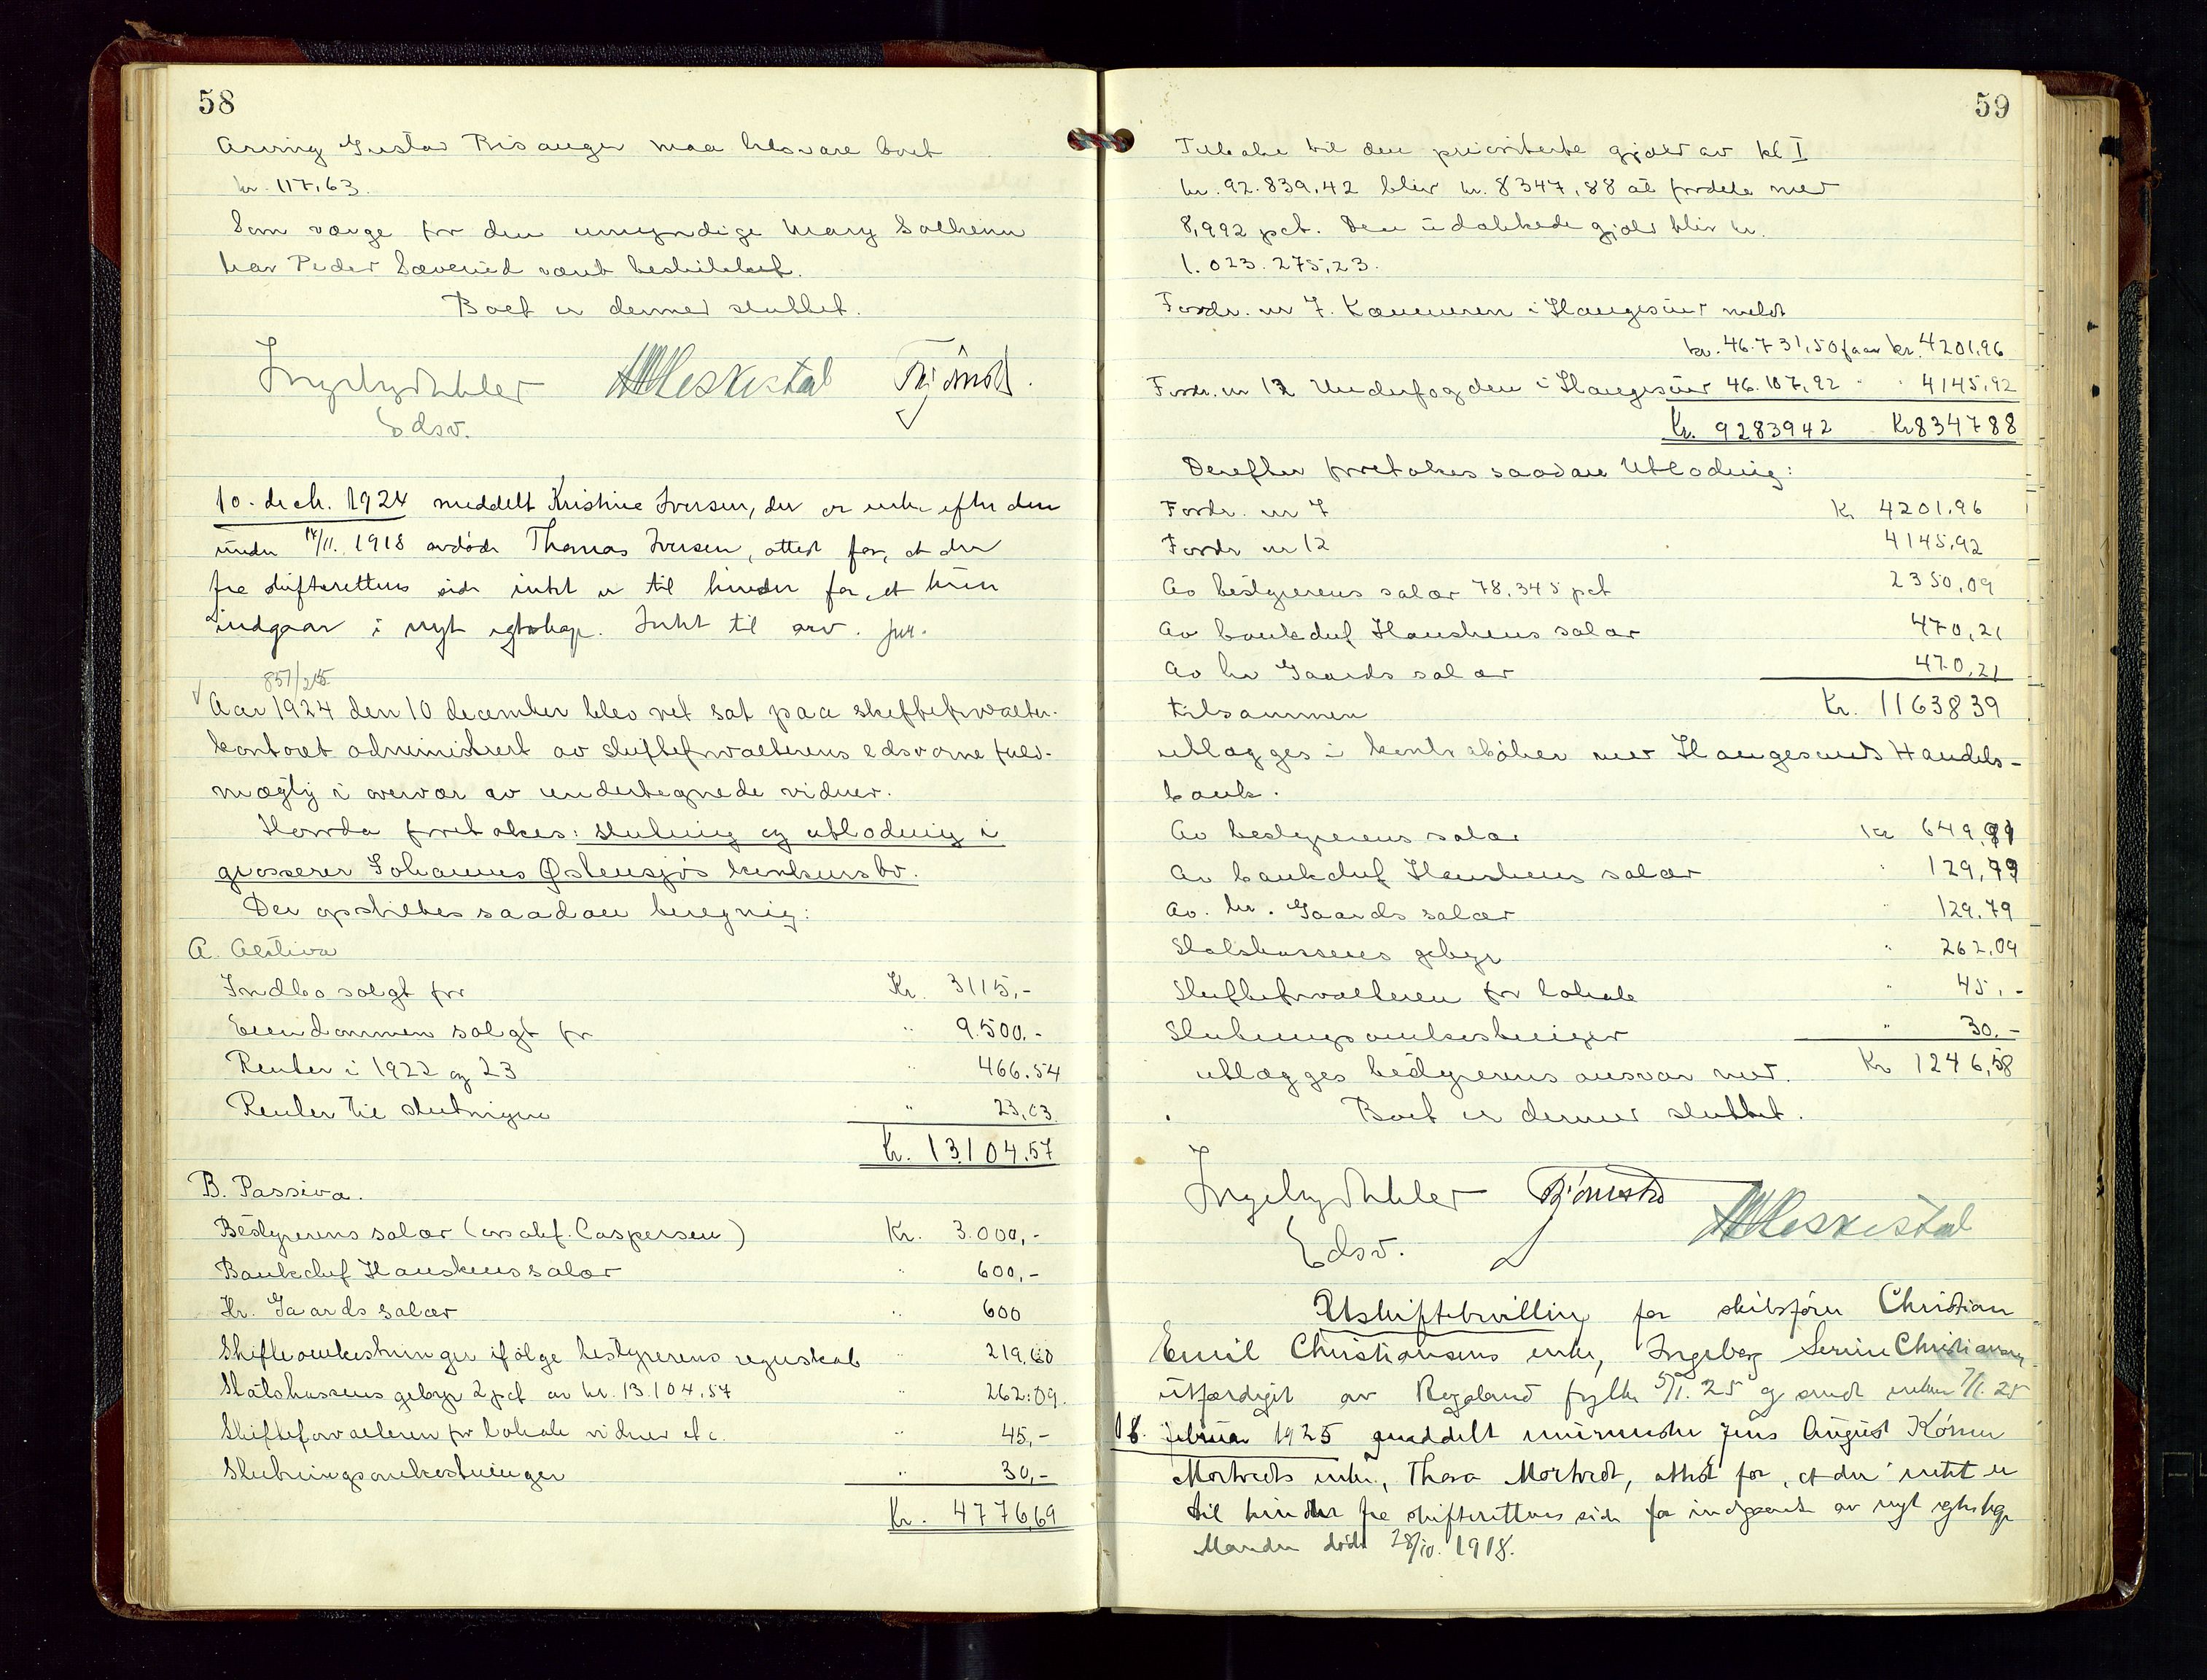 58
Arving Gustav Risanger maa tilsvare boet
kr. 117,63.
Som værge for den umyndige Mary Solheim
har Peder Sævereid vært beskikket.
Boet er dermed sluttet.
Ingeborg Dahler
Edsv.
10. dech. 1924 meddelt Kristine Iversen, der er enke efter den
under 14/11. 1918 avdøde Thomas Iversen, attest for, at der
fra skifterettens side intet er til hinder for, at hun
indgaar i nyt egteskap. Intet til arv.
851/215
Aar 1924 den 10 december blev ret sat paa skifteforvalter-
kontoret administrert av skifteforvalterens edsvorne fuld-
mægtig i overvær av undertegnede vidner.
Hvorda foretokes: slutning og utlodning i
grosserer Johannes Østensjøs konkursbo.
Der opstilles saadan beregning:
A. Aktiva
Indbo solgt for Kr. 3115,-
Eiendommen solgt for " 9.500.-
Renter i 1922 og 23 " 466.54
Renter til slutningen " 23,03
Kr. 13104.57
B. Passiva.
Bestyrerens salær (o.r.sakf. Caspersen) Kr. 3.000,-
Bankchef Hauskens salær " 600,-
Hr. Gaards salær " 600
Skifteomkostninger ifølge bestyrerens regnskab " 219,60
Statskassens gebyr 2 pct av kr. 13.104,57 " 262:09.
Skifteforvalteren for lokale vidner etc. " 45,-
Slutningsomkostninger " 30,-
Kr. 4776,69
59
Tilbake til den prioriterte gjæld av kl I
kr. 92.839,42 blir kr. 8347,88 at fordele med
8,992 pct. Den udækkede gjæld blir kr.
1.023.275,23.
Fordr. nr 7. Kæmneren i Haugesund meldt
kr. 46.731,50 faar kr. 4201,96
Fordr. nr 12 Underfogden i Haugesund 46.107,92 " " 4145,92
Kr. 9283942 Kr 834788
Derefter foretokes saadan Utlodning:
Fordr. nr 7 Kr 4201.96
Fordr nr 12 4145,92
Av bestyrerens salær 78,345 pct 2350,09
Av bankchef Hauskens salær 470,21
Av hr Gaards salær 470,21
tilsammen Kr. 1163839
utlægges i kontrabøker med Haugesunds Handels-
bank.
Av bestyrerens salær kr 649,91
Av bankchef Hauskens salær " 129,79
Av. hr. Gaards salær " 129.79
Statskassens gebyr " 262,09
Skifteforvalteren for lokale " 45,-
Slutningsomkostninger " 30.-
utlægges bestyrerens ansvar med. Kr 1246,58
Boet er dermed sluttet.
Ingeborg Dahler
Edsv.
Uskiftebevilling for skibsfører Christian
Emil Christiansens enke, Ingeborg Serine Christiansen
utfærdiget av Rogaland fylke 5/1. 25 og sendt enken 7/1. 25
18. februar 1925 meddelt murmester Jens August Körner
Mortvedts enke, Thora Mortvedt, attest for, at der intet er
til hinder fra skifterettens side for indgaaelse av nyt egteskap
Manden døde 28/10. 1918.